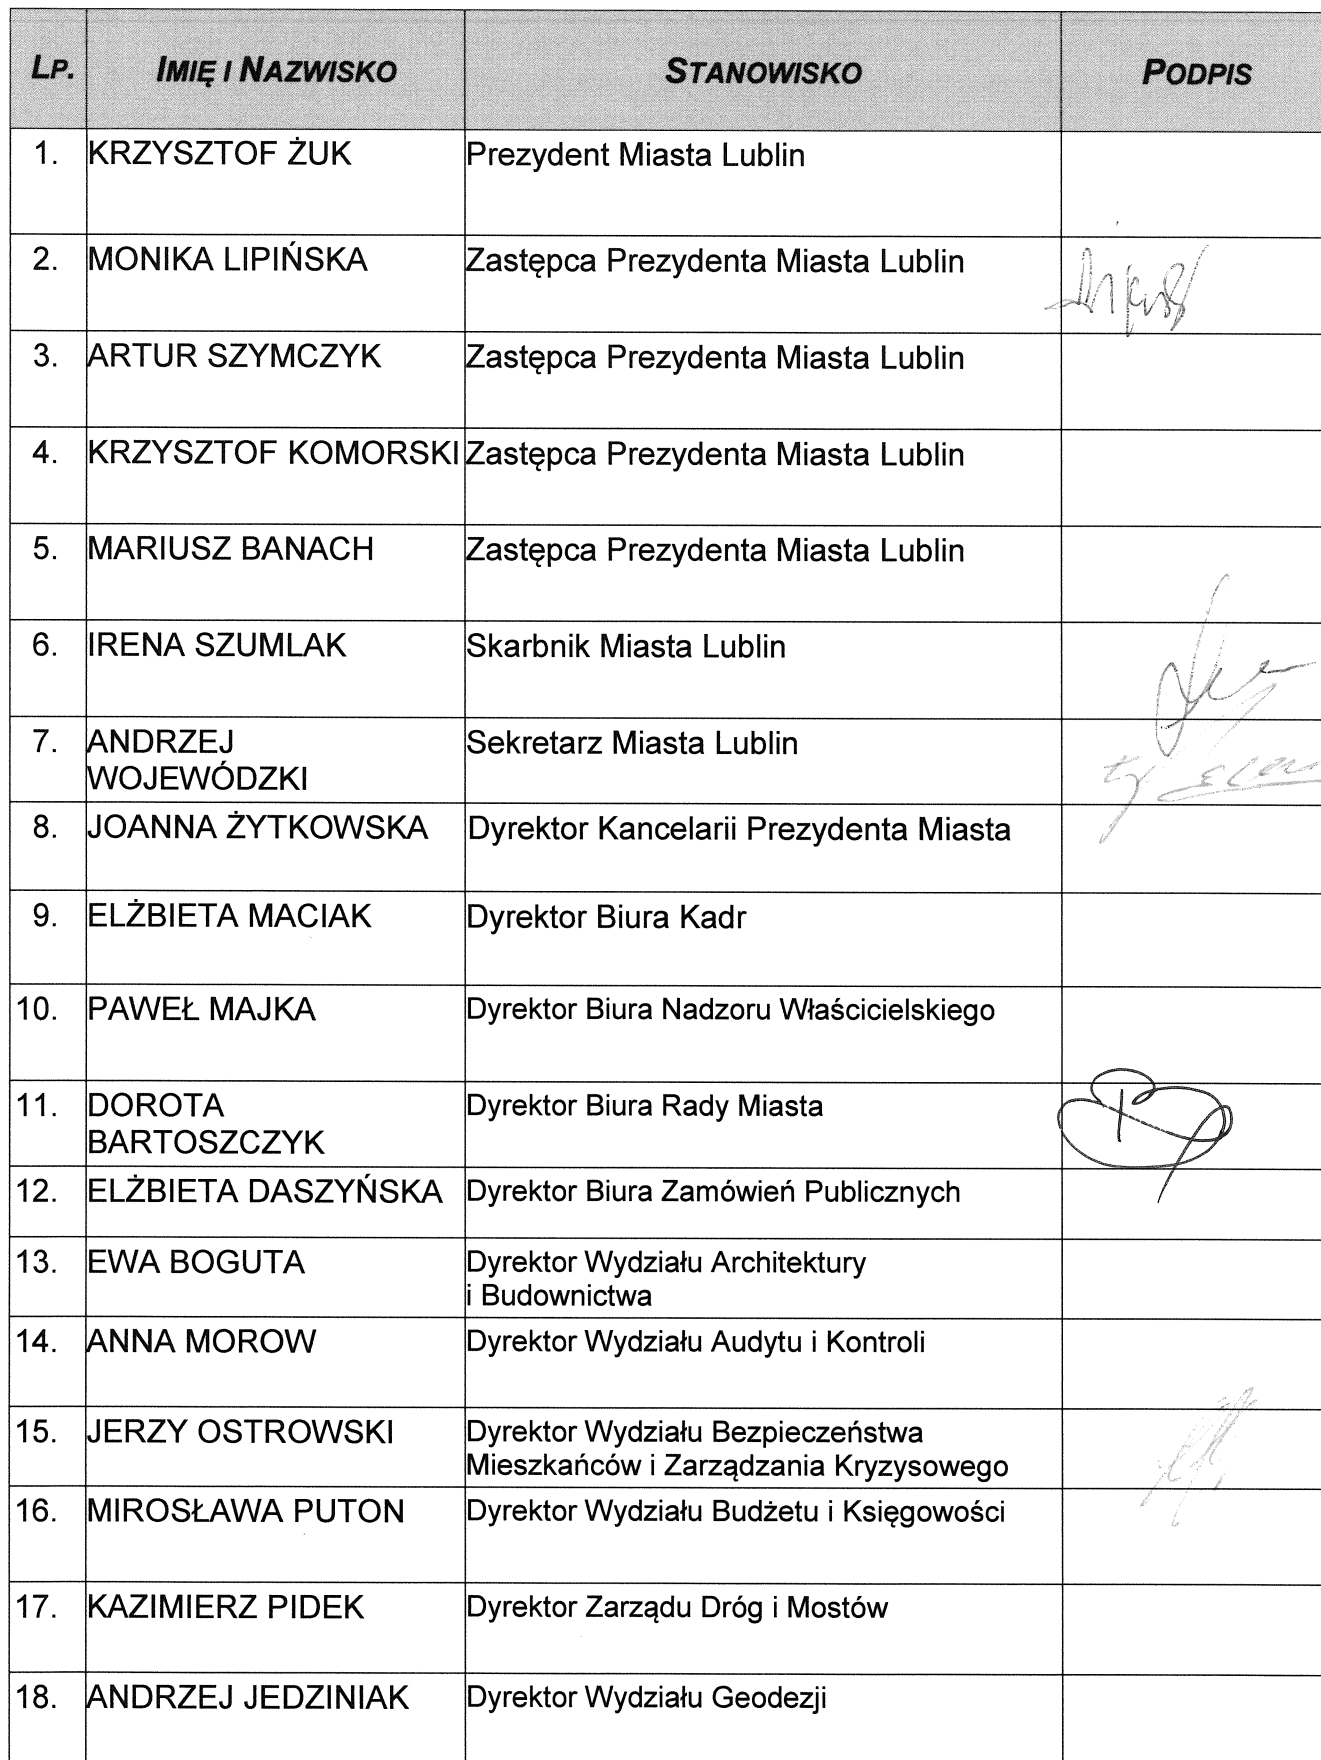 LP. IMIĘ I NAZWISKO STANOWISKO PODPIS
1. KRZYSZTOF ŻUK Prezydent Miasta Lublin
2. MONIKA LIPIŃSKA Zastępca Prezydenta Miasta Lublin
3. ARTUR SZYMCZYK Zastępca Prezydenta Miasta Lublin
4. KRZYSZTOF KOMORSKI Zastępca Prezydenta Miasta Lublin
5. MARIUSZ BANACH Zastępca Prezydenta Miasta Lublin
6. IRENA SZUMLAK Skarbnik Miasta Lublin
7. ANDRZEJ Sekretarz Miasta Lublin
WOJEWÓDZKI
8. JOANNA ŻYTKOWSKA Dyrektor Kancelarii Prezydenta Miasta
9. ELŻBIETA MACIAK Dyrektor Biura Kadr
10. PAWEŁ MAJKA Dyrektor Biura Nadzoru Właścicielskiego
11. DOROTA Dyrektor Biura Rady Miasta
BARTOSZCZYK
12. ELŻBIETA DASZYŃSKA Dyrektor Biura Zamówień Publicznych
13. EWA BOGUTA Dyrektor Wydziału Architektury
i Budownictwa
14. ANNA MOROW Dyrektor Wydziału Audytu i Kontroli
15. JERZY OSTROWSKI Dyrektor Wydziału Bezpieczeństwa
Mieszkańców i Zarządzania Kryzysowego
16. MIROSŁAWA PUTON Dyrektor Wydziału Budżetu i Księgowości
17. KAZIMIERZ PIDEK Dyrektor Zarządu Dróg i Mostów
18. ANDRZEJ JEDZINIAK Dyrektor Wydziału Geodezji